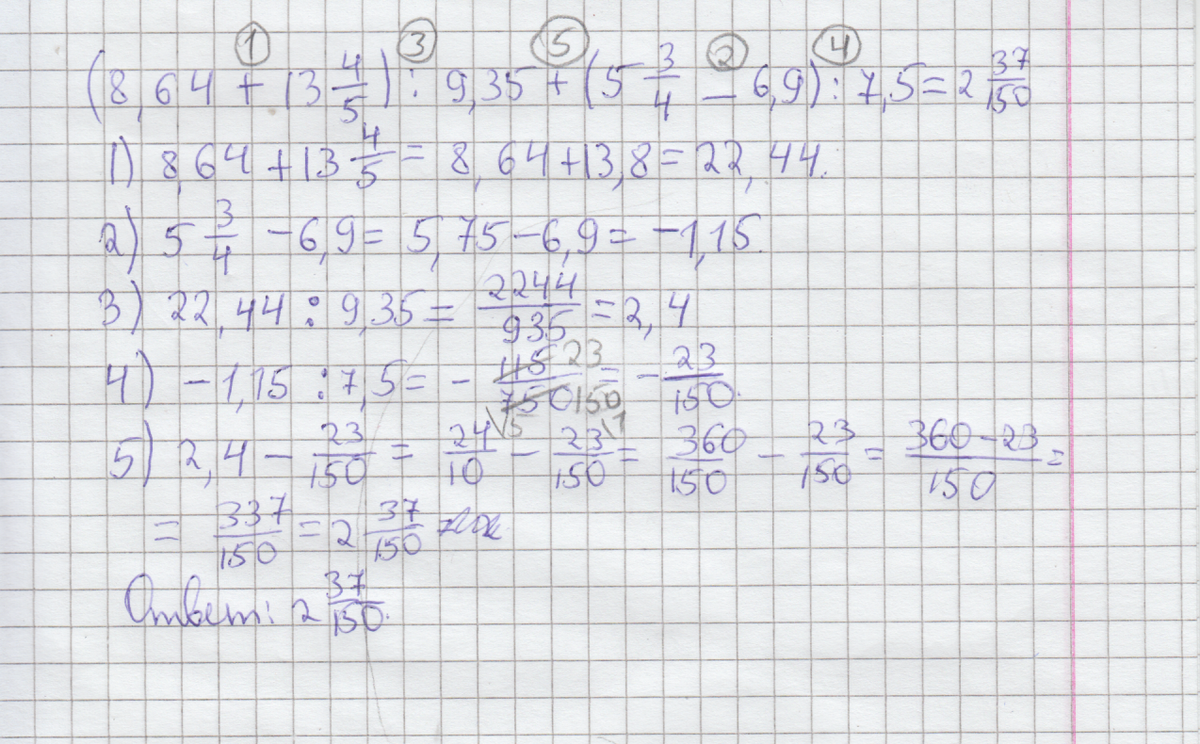 ① ③ ⑤ ② ④
(8,64 + 13 4/5) : 9,35 + (5 3/4 - 6,9) : 7,5 = 2 37/150
1) 8,64 + 13 4/5 = 8,64 + 13,8 = 22,44.
2) 5 3/4 - 6,9 = 5,75 - 6,9 = -1,15.
3) 22,44 : 9,35 = 2244/935 = 2,4
4) -1,15 : 7,5 = - 115/750 23/150 = - 23/150.
5) 2,4 - 23/150 = 24/10 \15 - 23/150 \1 = 360/150 - 23/150 = (360 - 23)/150 =
= 337/150 = 2 37/150
Ответ: 2 37/150.